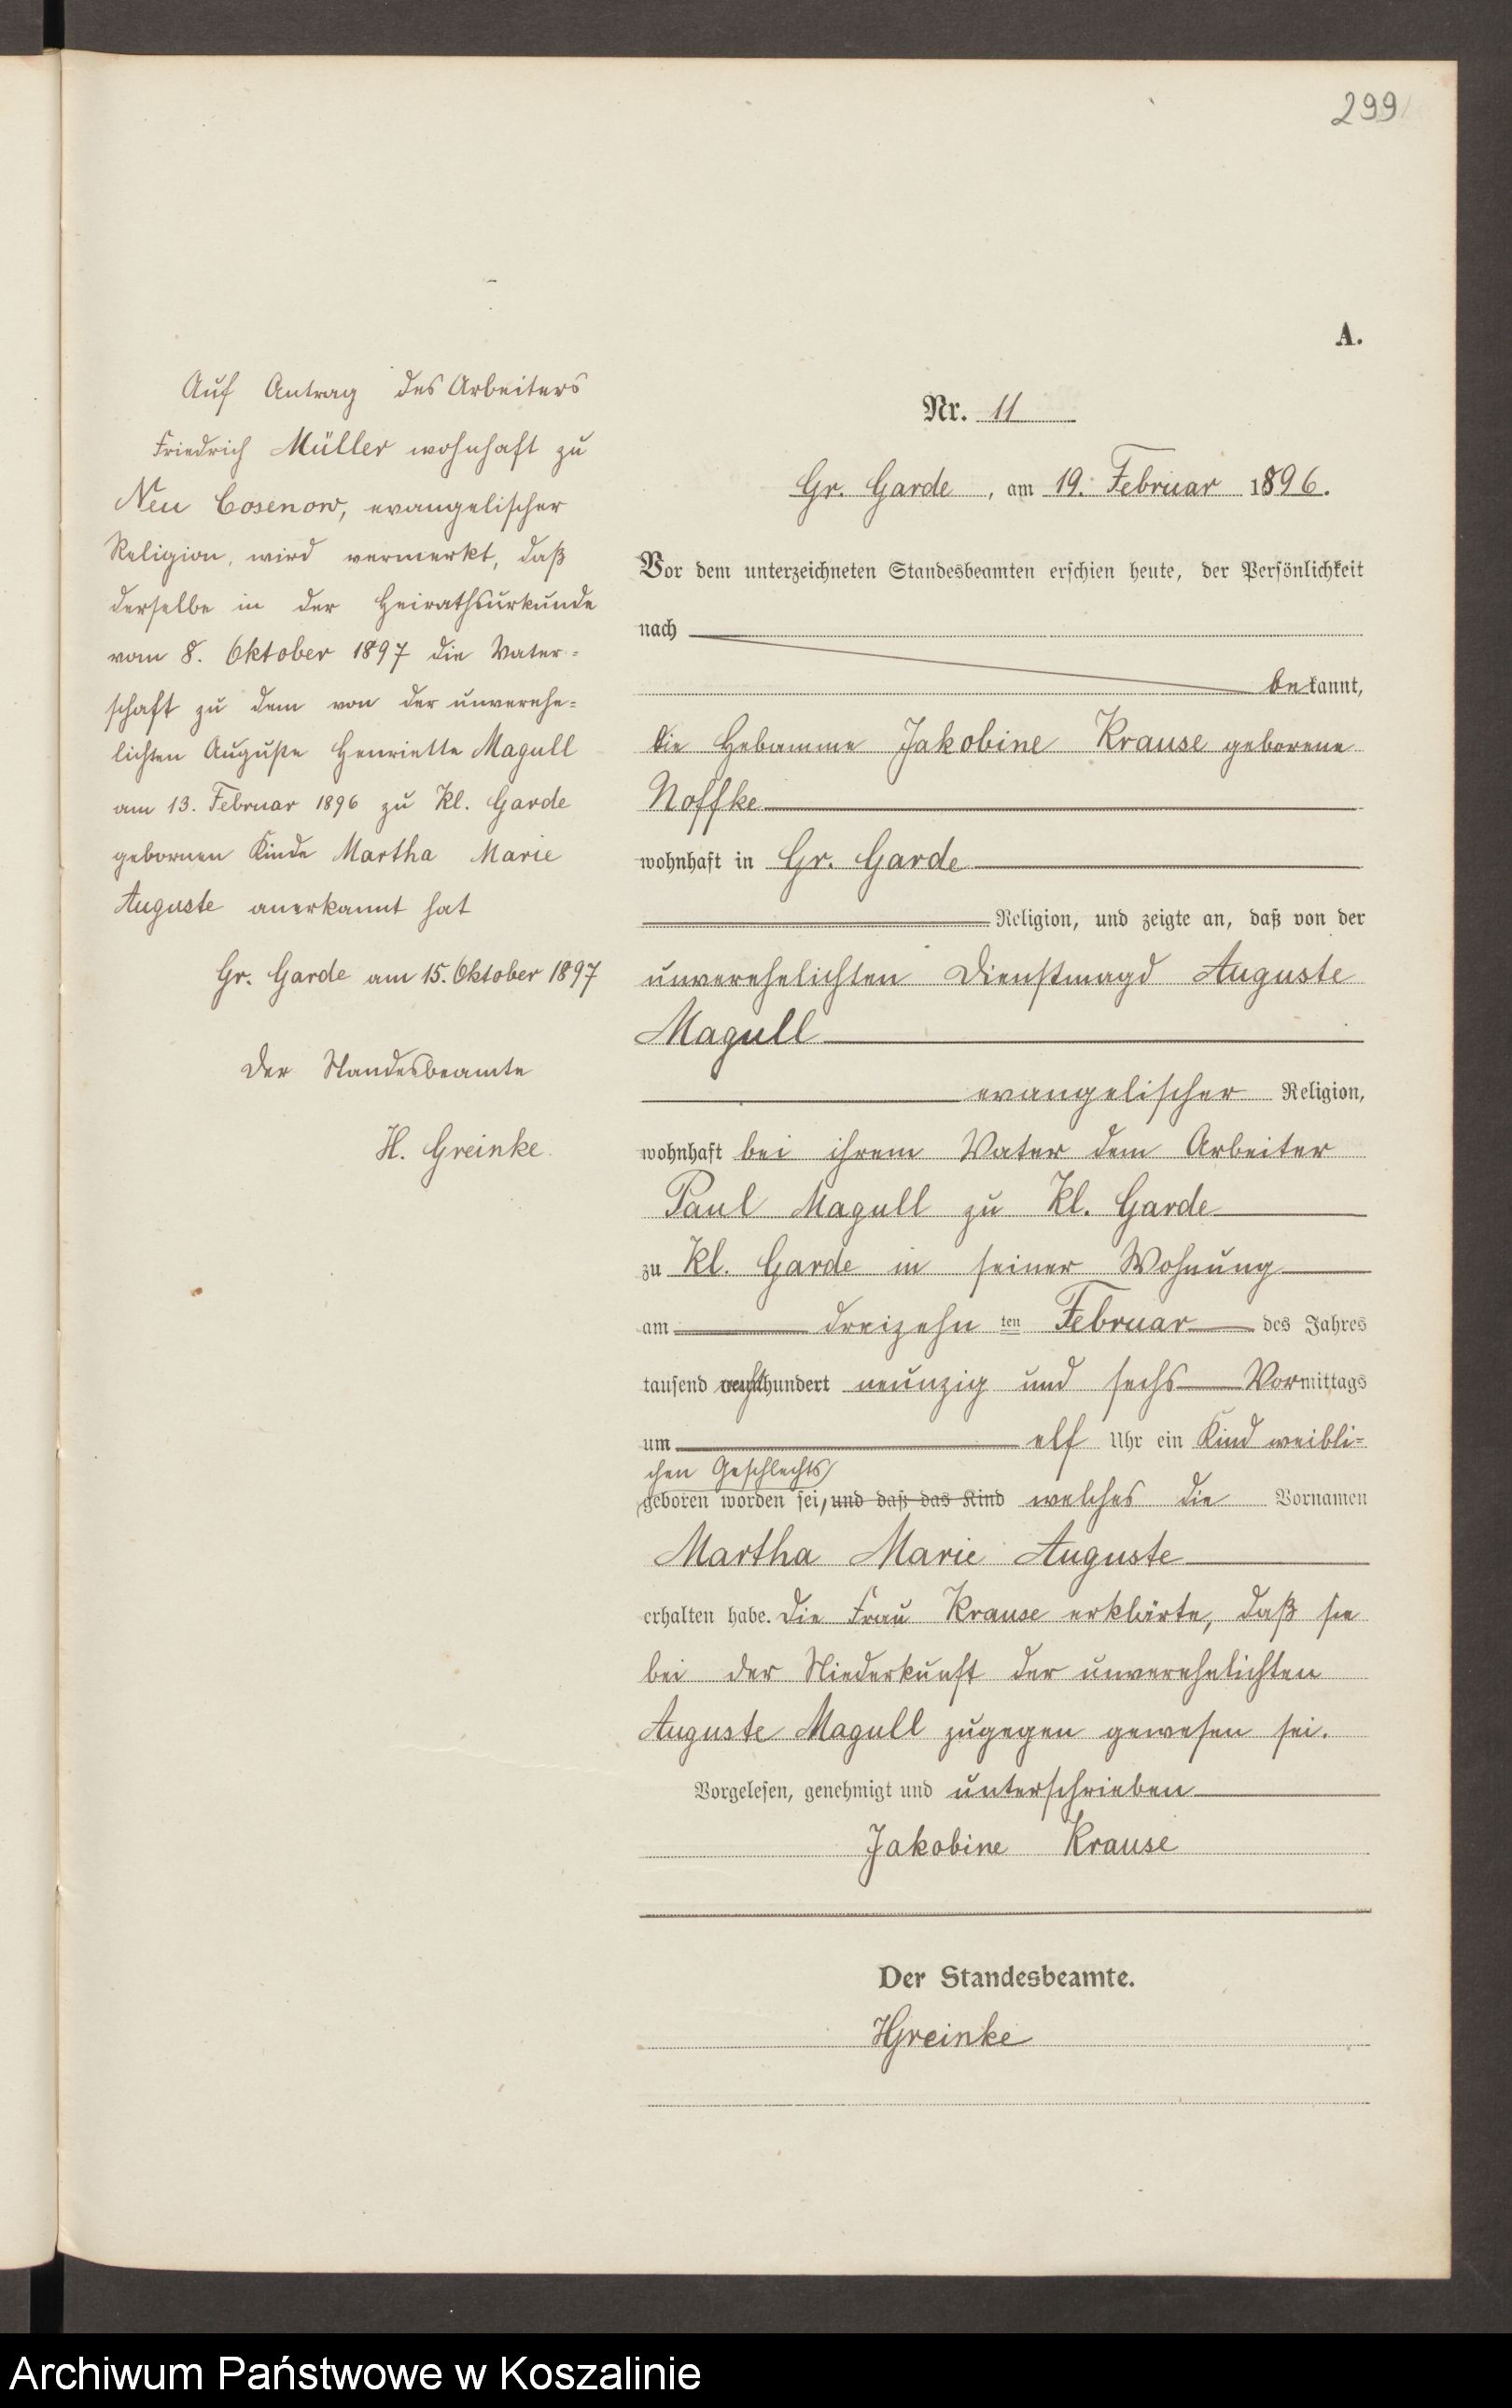 299
A.
Auf Antrag des Arbeiters
Friedrich Müller wohnhaft zu
Neu Cosenow, evangelischer
Religion, wird vermerkt, daß
derselbe in der Heirathsurkunde
vom 8. Oktober 1897 die Vater-
schaft zu dem von der unverehe-
lichten Auguste Henriette Magull
am 13. Februar 1896 zu Kl. Garde
gebornen Kinde Martha Marie
Auguste anerkannt hat
Gr. Garde am 15. Oktober 1897
Der Standesbeamte
H. Greinke
Nr. 11
Gr. Garde, am 19. Februar 1896.
Vor dem unterzeichneten Standesbeamten erschien heute, der Persönlichkeit
nach
bekannt,
die Hebamme Jakobine Krause geborene
Noffke
wohnhaft in Gr. Garde
Religion, und zeigte an, daß von der
unverehelichten Dienstmagd Auguste
Magull
evangelischer Religion,
wohnhaft bei ihrem Vater dem Arbeiter
Paul Magull zu Kl. Garde
zu Kl. Garde in seiner Wohnung
am dreizehn ten Februar des Jahres
tausend achthundert neunzig und sechs Vormittags
um elf Uhr ein Kind weibli-
chen Geschlechts
geboren worden sei, und daß das Kind welches die Vornamen
Martha Marie Auguste
erhalten habe. Die Frau Krause erklärte, daß sie
bei der Niederkunft der unverehelichten
Auguste Magull zugegen gewesen sei.
Vorgelesen, genehmigt und unterschrieben
Jakobine Krause
Der Standesbeamte.
HGreinke
Archiwum Państwowe w Koszalinie